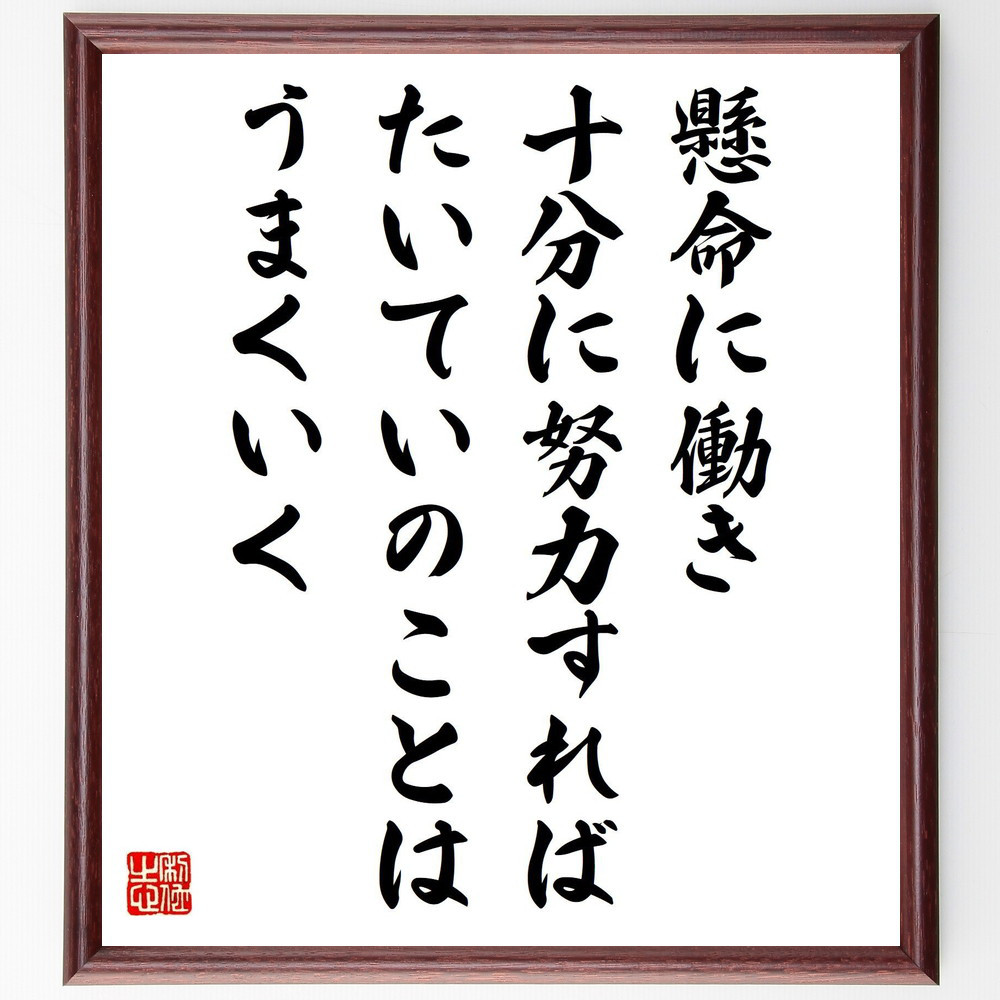 懸命に働き
十分に努力すれば
たいていのことは
うまくいく